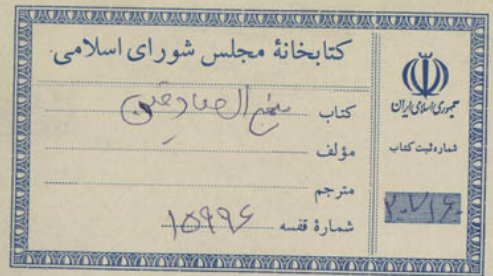 کتابخانهٔ مجلس شورای اسلامی
کتاب منهج الصادقین
مؤلف
مترجم
شمارهٔ قفسه ۱۵۹۹۶
جمهوری اسلامی ایران
شماره ثبت کتاب
۲۰۷۱۶۰